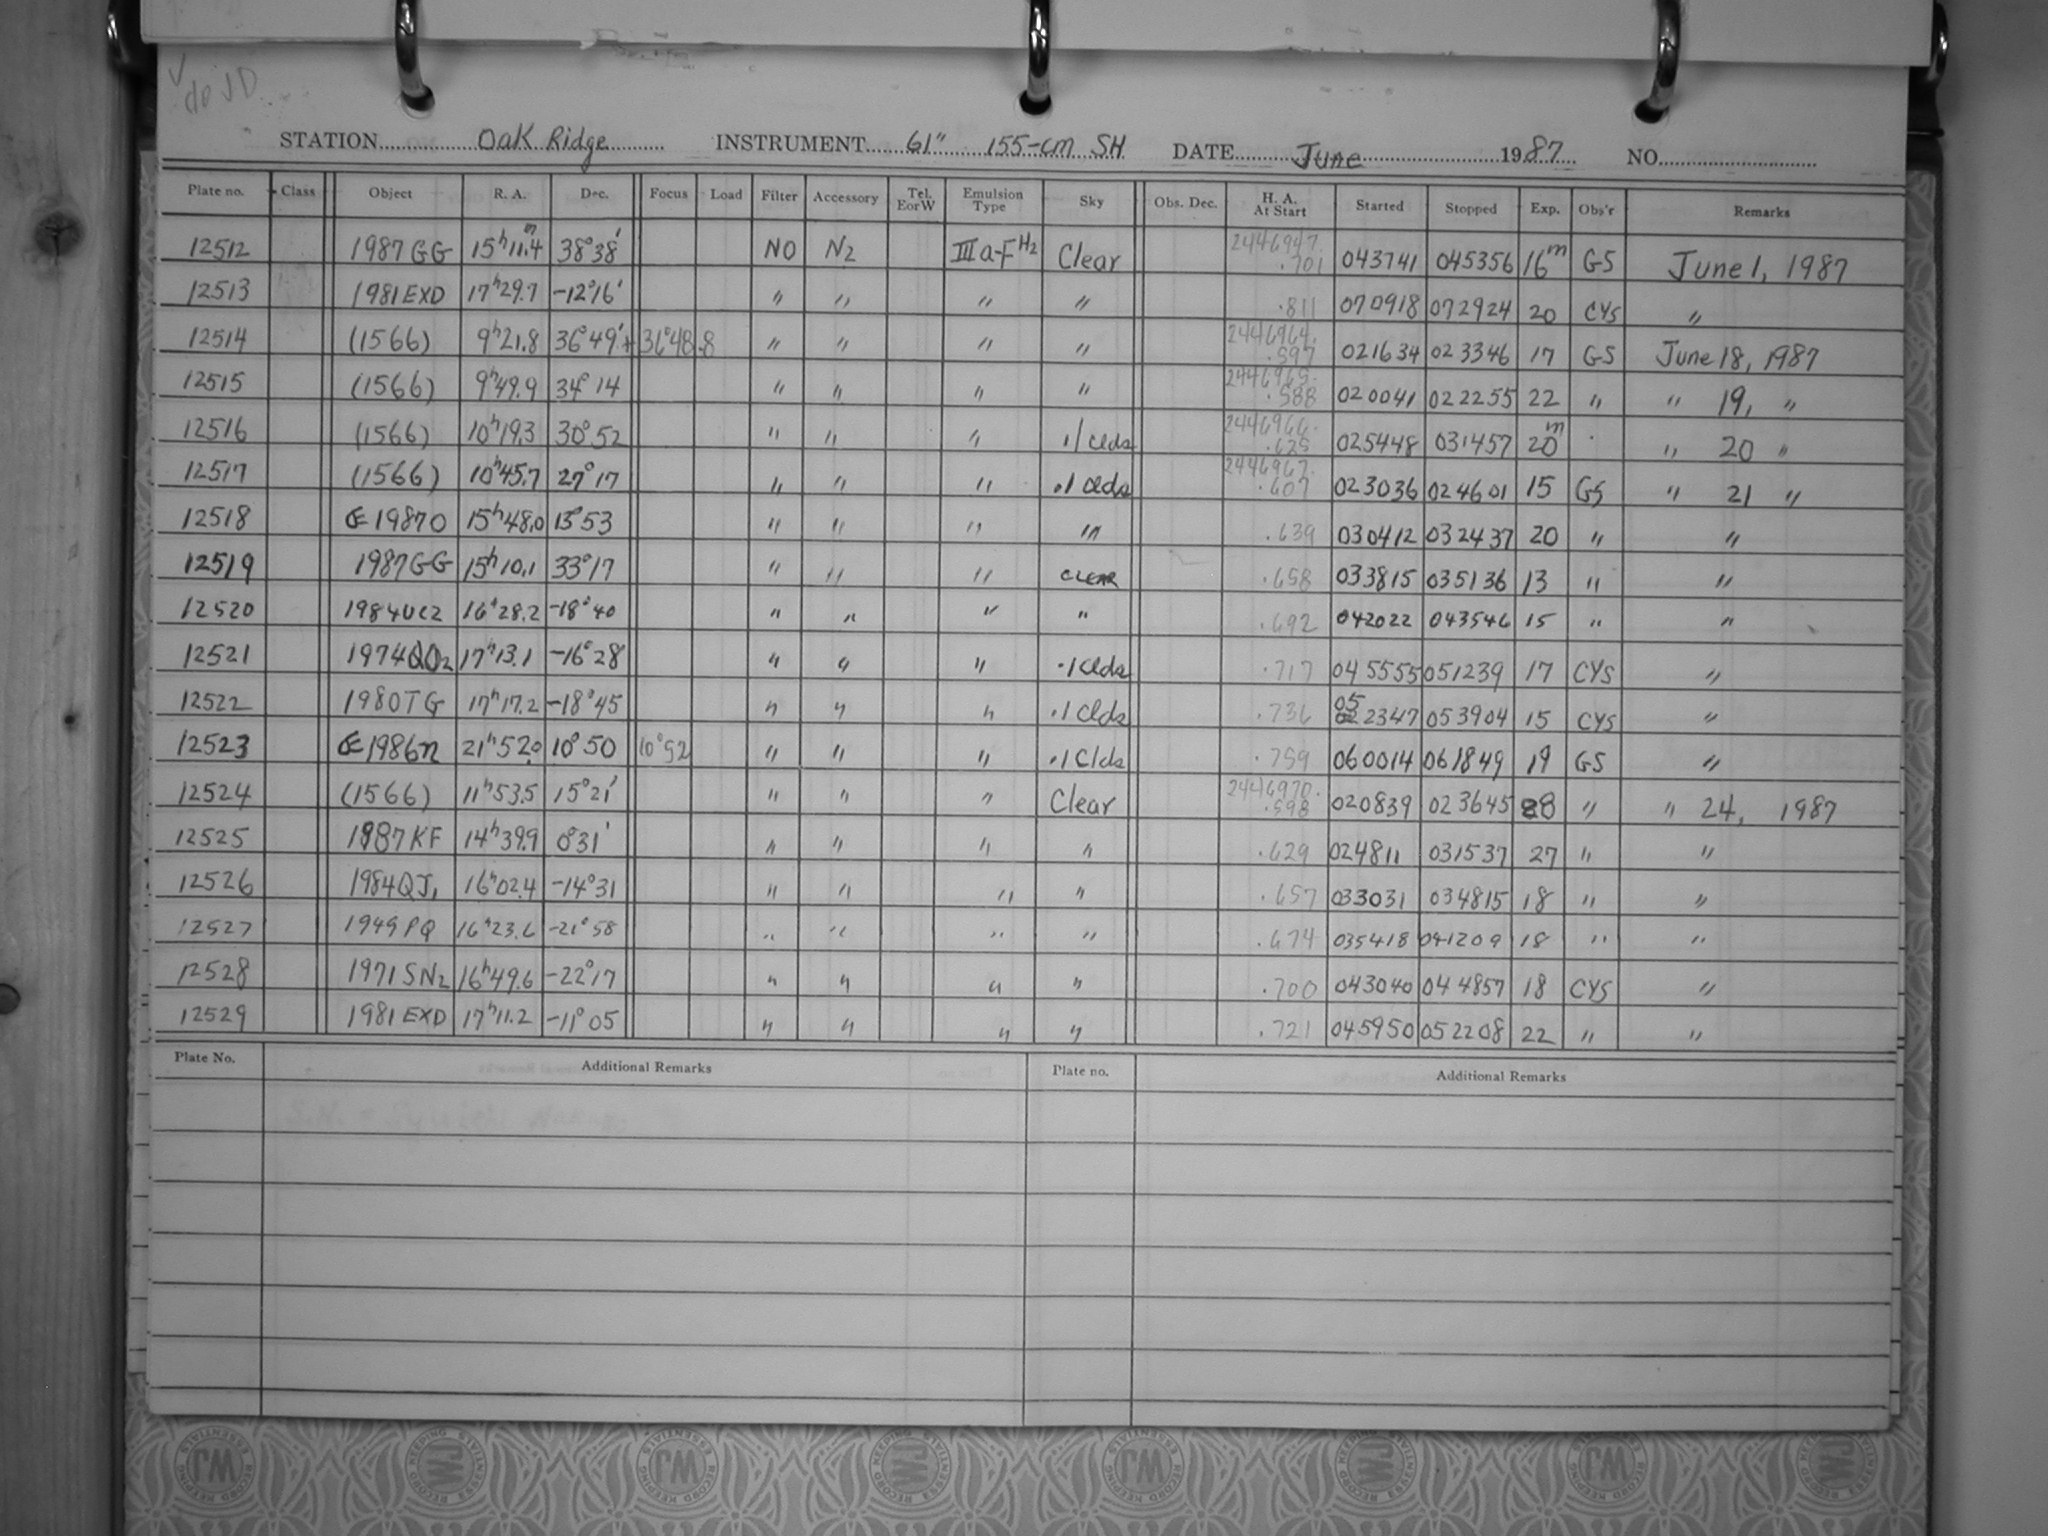 √ do JD
STATION Oak Ridge INSTRUMENT 61" 155-cm SH DATE June 1987 NO.
Plate no. Class Object R. A. Dec. Focus Load Filter Accessory Tel. EorW Emulsion Type Sky Obs. Dec. H. A. At Start Started Stopped Exp. Obs'r Remarks
12512 1987 GG 15h11.4m 38°38' NO N2 IIIa-F H2 Clear 2446947. .701 043741 045356 16m GS June 1, 1987
12513 1981EXD 17h29.7 -12°16' " " " " .811 070918 072924 20 CYS "
12514 (1566) 9h21.8 36°49'+ 36°48.8 " " " " 2446964. .597 021634 023346 17 GS June 18, 1987
12515 (1566) 9h49.9 34°14 " " " " 2446965. .588 020041 022255 22 " " 19, "
12516 (1566) 10h19.3 30°52 " " " .1 clds 2446966. .625 025448 031457 20m . " 20 "
12517 (1566) 10h45.7 27°17 " " " .1 clds 2446967. .607 023036 024601 15 GS " 21 "
12518 1987O 15h48.0 13°53 " " " " .639 030412 032437 20 " "
12519 1987GG 15h10.1 33°17 " " " CLEAR .658 033815 035136 13 " "
12520 1984UC2 16h28.2 -18°40 " " " " .692 042022 043546 15 " "
12521 1974QO2 17h13.1 -16°28 " " " .1 clds .717 045555 051239 17 CYS "
12522 1980TG 17h17.2 -18°45 " " " .1 Clds .736 052347 053904 15 CYS "
12523 1986n 21h52.0 10°50 10°52 " " " .1 Clds .759 060014 061849 19 GS "
12524 (1566) 11h53.5 15°21' " " " Clear 2446970. .598 020839 023645 28 " " 24, 1987
12525 1987KF 14h39.9 0°31' " " " " .629 024811 031537 27 " "
12526 1984QJ1 16h02.4 -14°31 " " " " .657 033031 034815 18 " "
12527 1949PQ 16h23.6 -21°58 " " " " .674 035418 041209 18 " "
12528 1971SN2 16h49.6 -22°17 " " " " .700 043040 044857 18 CYS "
12529 1981EXD 17h11.2 -11°05 " " " " .721 045950 052208 22 " "
Plate No. Additional Remarks Plate no. Additional Remarks
JW RECORD KEEPING ESSENTIALS